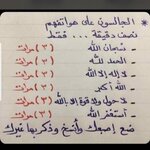 * الجالسون على هواتفهم
نصف دقيقة ... فقط
- سبحان الله (٣) مرات
- الحمد لله (٣) مرات
- لا إله إلا الله (٣) مرات
- الله أكبر (٣) مرات
- لا حول ولا قوة إلا بالله (٣) مرات
- أستغفر الله (٣) مرات
ضع إصبعك وأنسخ وذكر بها غيرك